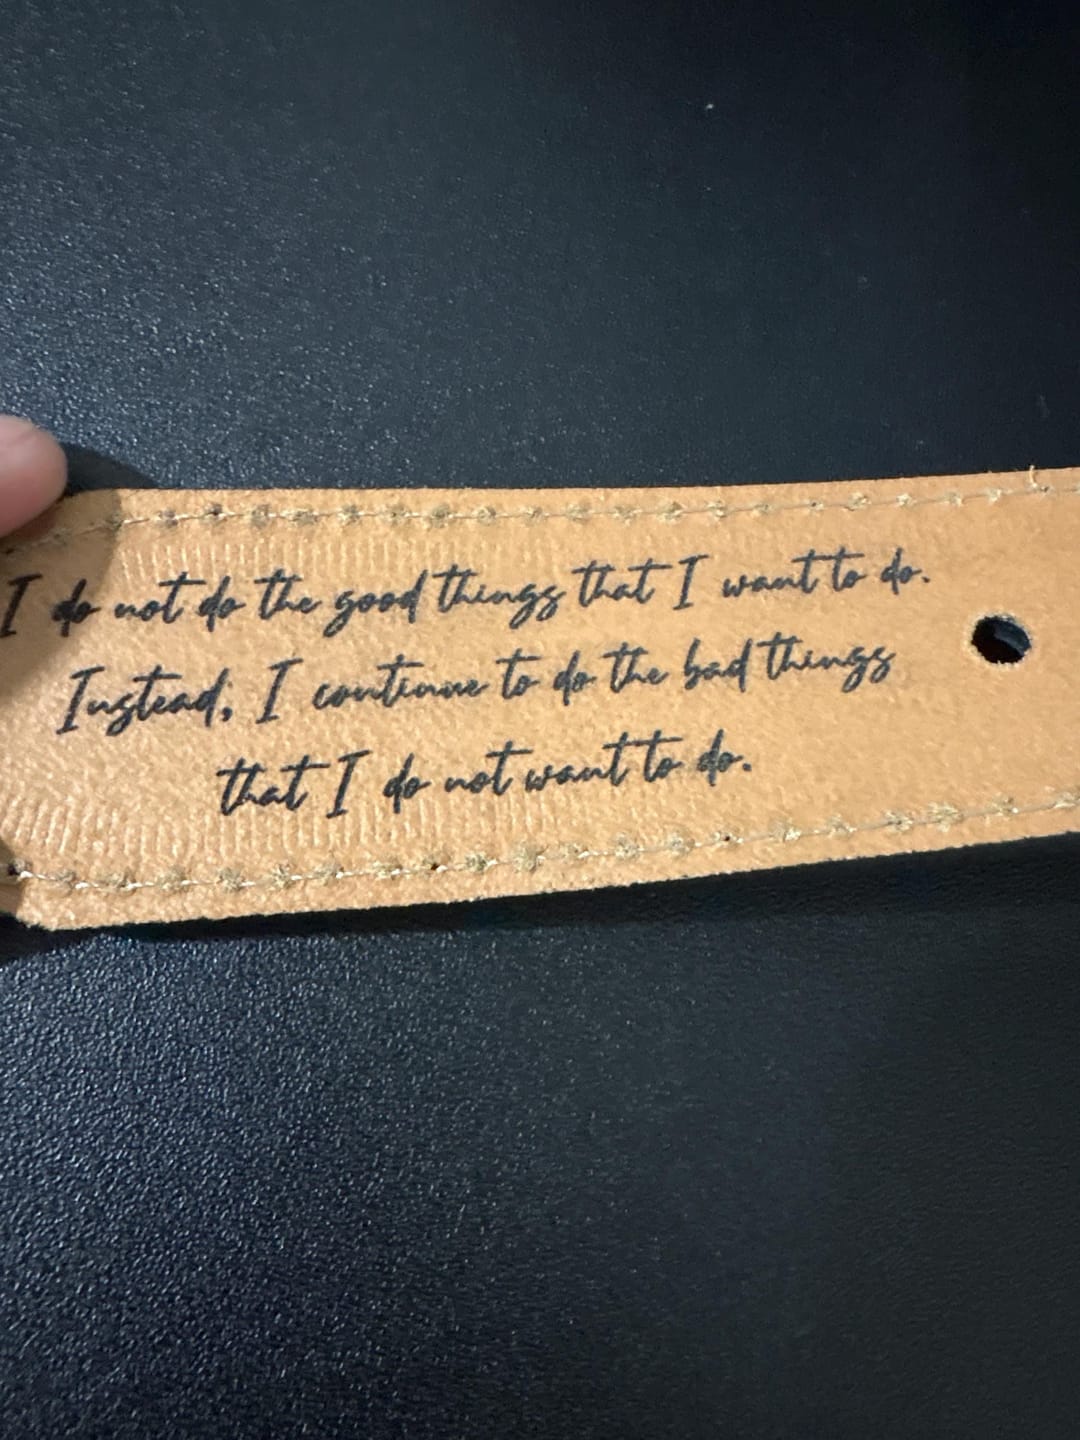 I do not do the good things that I want to do.
Instead, I continue to do the bad things
that I do not want to do.